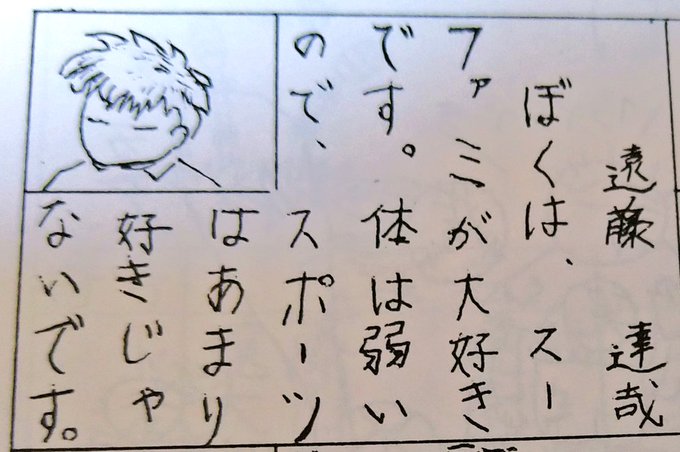 遠藤 達哉
ぼくは、スー
ファミが大好き
です。体は弱い
ので、スポーツ
はあまり
好きじゃ
ないです。